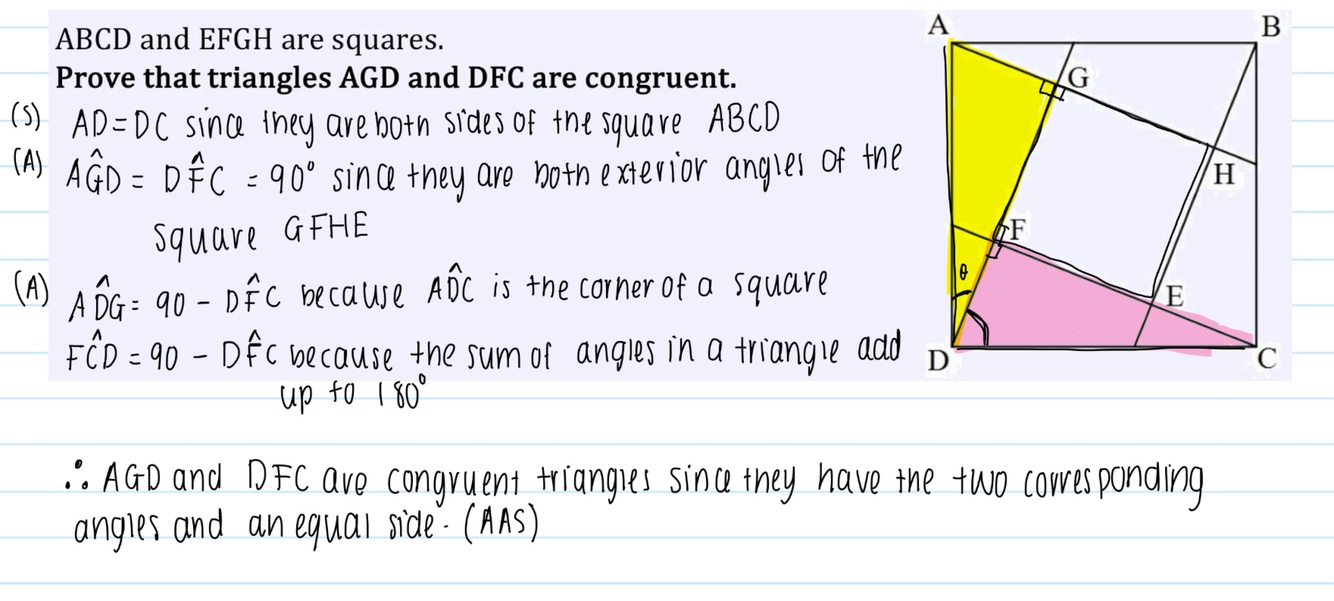 ABCD and EFGH are squares.
Prove that triangles AGD and DFC are congruent.
(S) AD=DC since they are both sides of the square ABCD
(A) AĜD = DF̂C = 90° since they are both exterior angles of the
square GFHE
(A) AD̂G = 90 - DF̂C because AD̂C is the corner of a square
FĈD = 90 - DF̂C because the sum of angles in a triangle add
up to 180°
∴ AGD and DFC are congruent triangles since they have the two corresponding
angles and an equal side. (AAS)
A
B
G
H
F
θ
E
D
C